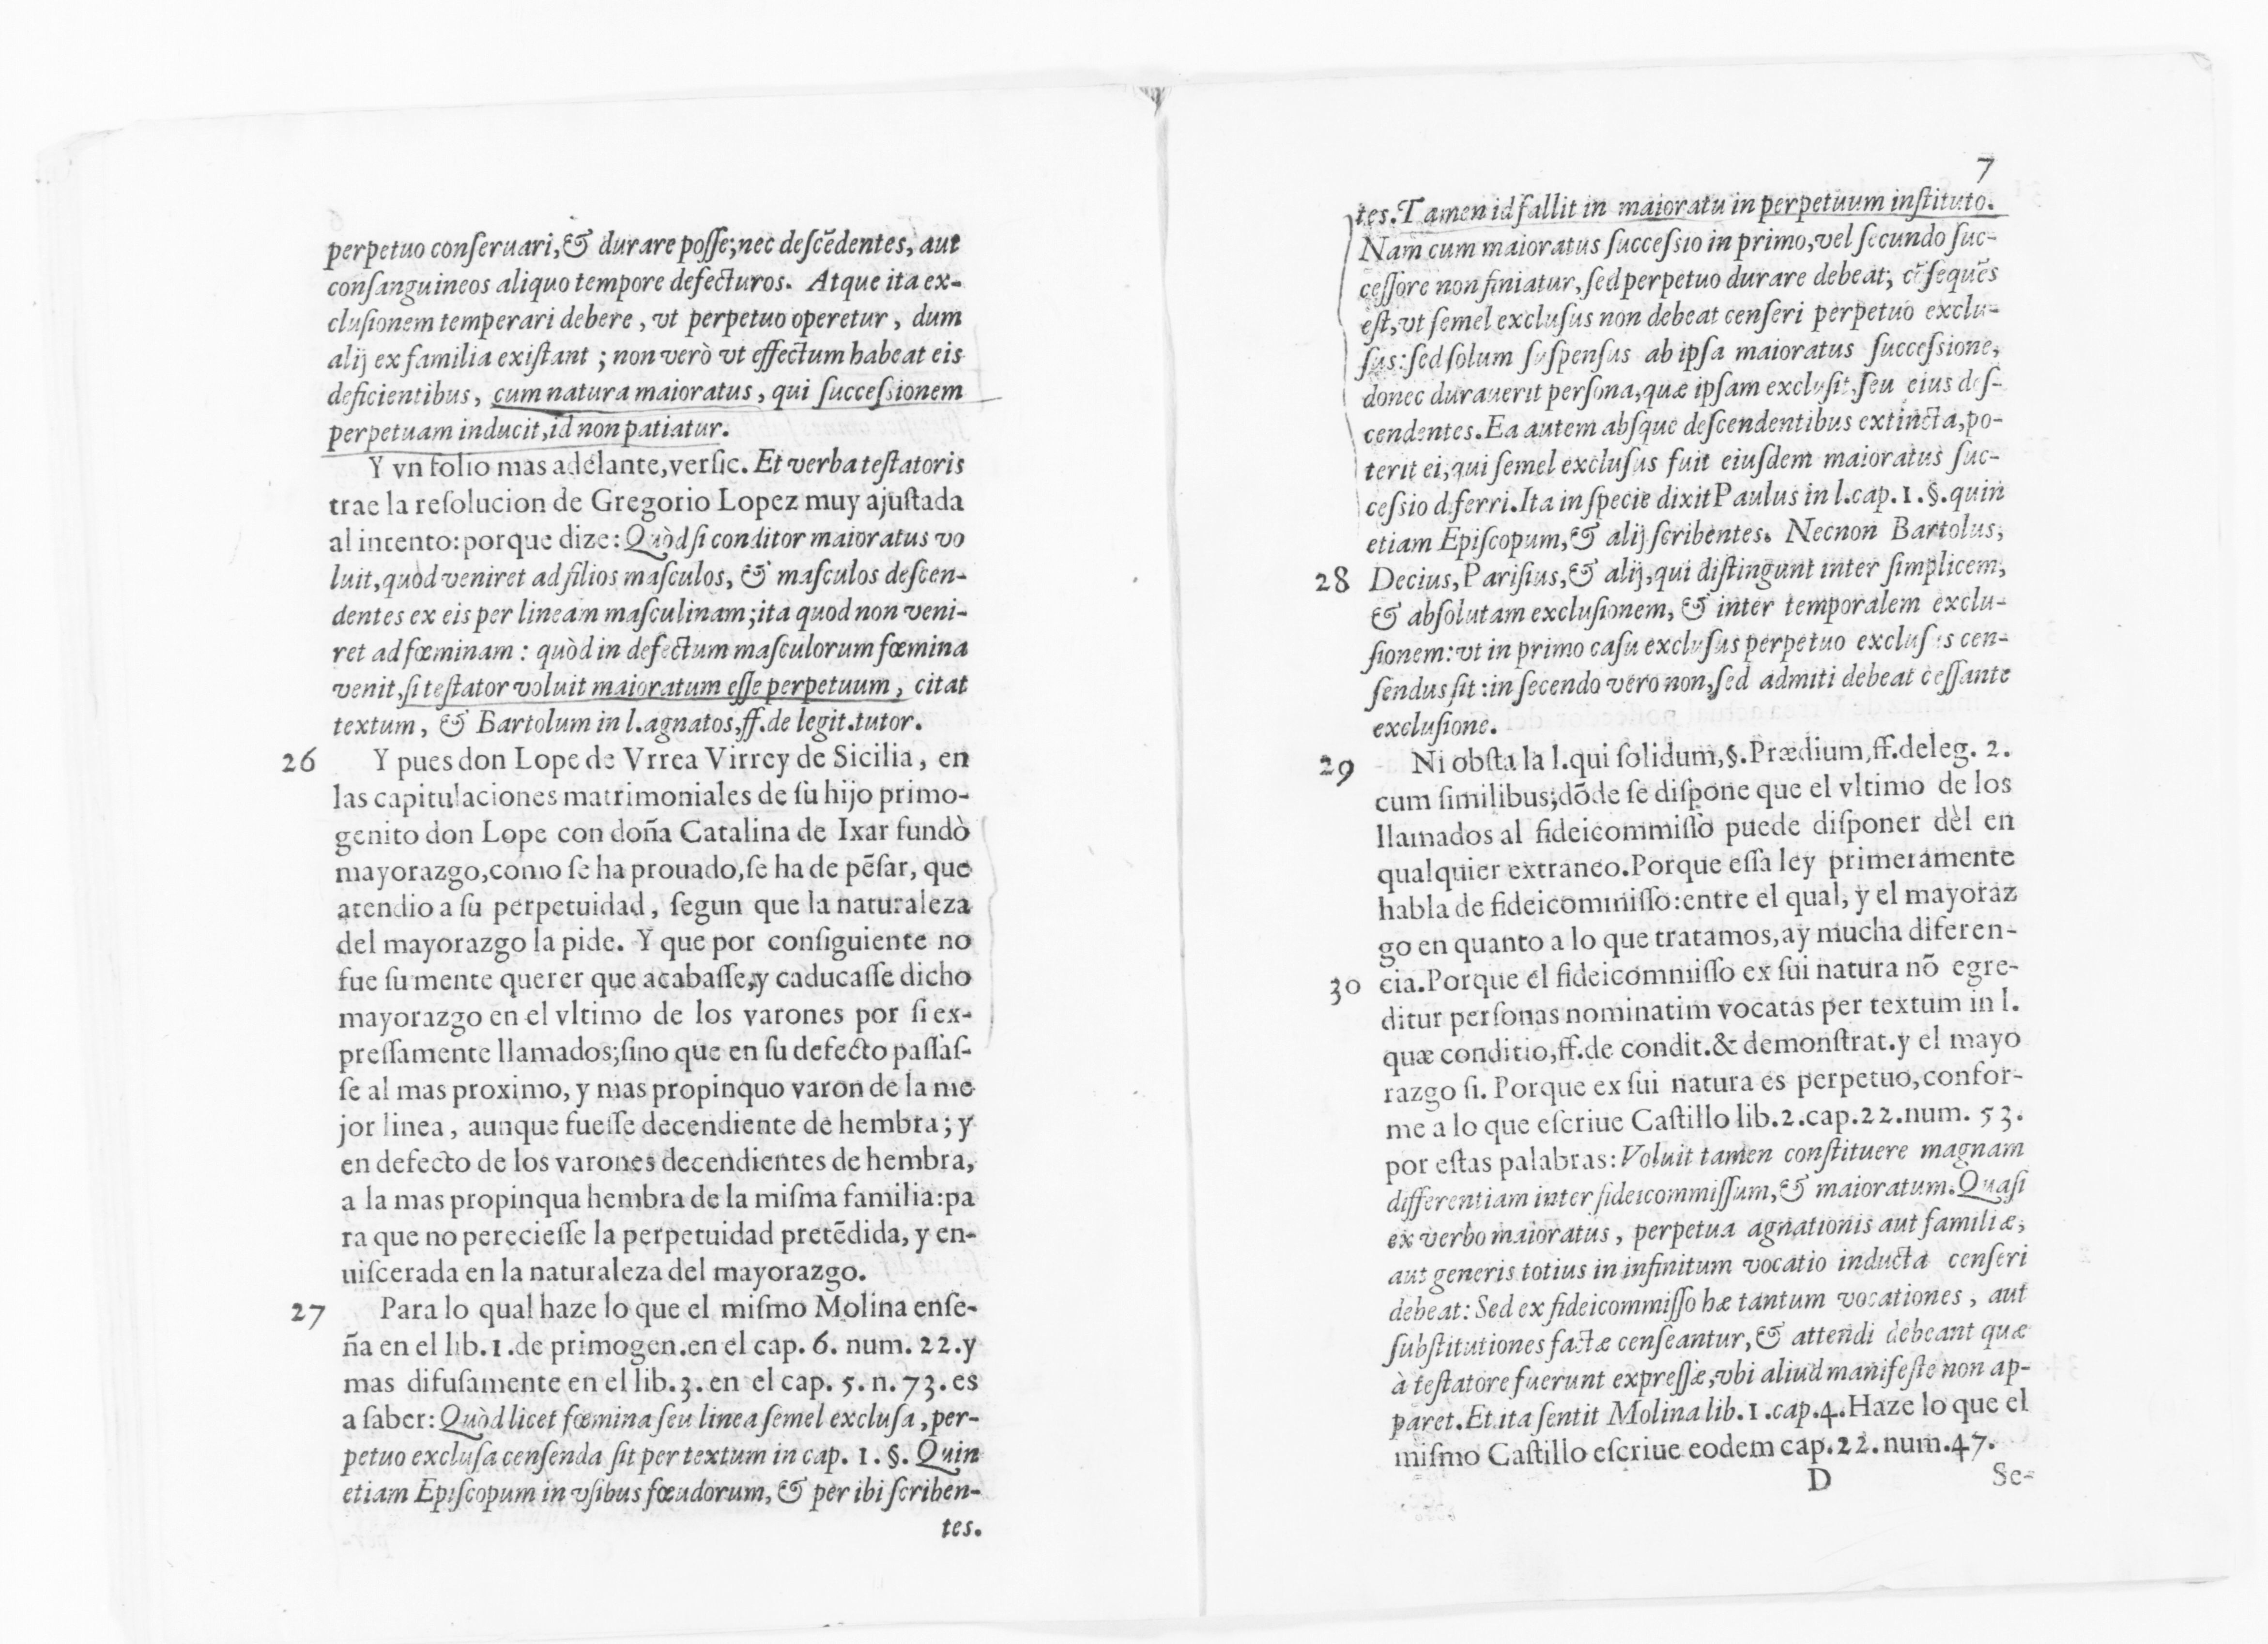 perpetuo conſeruari,& durare poſſe;nec deſcēdentes, aut
conſanguineos aliquo tempore defecturos. Atque ita ex-
cluſionem temperari debere, vt perpetuo operetur, dum
alij ex familia exiſtant; non verò vt effectum habeat eis
deficientibus, cum natura maioratus, qui ſucceſsionem
perpetuam inducit,id non patiatur.
Y vn folio mas adelante,verſic. Et verba teſtatoris
trae la reſolucion de Gregorio Lopez muy ajuſtada
al intento:porque dize: Quòd ſi conditor maioratus vo
luit,quod veniret ad filios maſculos, & maſculos deſcen-
dentes ex eis per lineam maſculinam;ita quod non veni-
ret ad fœminam: quòd in defectum maſculorum fœmina
venit,ſi teſtator voluit maioratum eſſe perpetuum, citat
textum, & Bartolum in l.agnatos,ff.de legit.tutor.
26 Y pues don Lope de Vrrea Virrey de Sicilia, en
las capitulaciones matrimoniales de ſu hijo primo-
genito don Lope con doña Catalina de Ixar fundò
mayorazgo,como ſe ha prouado,ſe ha de pēſar, que
atendio a ſu perpetuidad, ſegun que la naturaleza
del mayorazgo la pide. Y que por conſiguiente no
fue ſu mente querer que acabaſſe,y caducaſſe dicho
mayorazgo en el vltimo de los varones por ſi ex-
preſſamente llamados;ſino que en ſu defecto paſſaſ-
ſe al mas proximo, y mas propinquo varon de la me
jor linea, aunque fueſſe decendiente de hembra; y
en defecto de los varones decendientes de hembra,
a la mas propinqua hembra de la miſma familia:pa
ra que no perecieſſe la perpetuidad pretēdida, y en-
uiſcerada en la naturaleza del mayorazgo.
27 Para lo qual haze lo que el miſmo Molina enſe-
ña en el lib.1.de primogen.en el cap. 6. num. 22.y
mas difuſamente en el lib.3. en el cap. 5. n. 73. es
a ſaber: Quòd licet fœmina ſeu linea ſemel excluſa, per-
petuo excluſa cenſenda ſit per textum in cap. 1. §. Quin
etiam Epiſcopum in vſibus fœudorum, & per ibi ſcriben-
tes.
7
tes. Tamen id fallit in maioratu in perpetuum inſtituto.
Nam cum maioratus ſucceſsio in primo,vel ſecundo ſuc-
ceſſore non finiatur,ſed perpetuo durare debeat; cōſequēs
eſt,vt ſemel excluſus non debeat cenſeri perpetuo exclu-
ſus:ſed ſolum ſuſpenſus ab ipſa maioratus ſucceſsione,
donec durauerit perſona,quæ ipſam excluſit,ſeu eius deſ-
cendentes. Ea autem abſque deſcendentibus extincta,po-
terit ei,qui ſemel excluſus fuit eiuſdem maioratus ſuc-
ceſsio deferri. Ita in ſpecie dixit Paulus in l.cap.1.§.quin
etiam Epiſcopum,& alij ſcribentes. Necnon Bartolus,
28 Decius, Pariſius,& alij,qui diſtingunt inter ſimplicem,
& abſolutam excluſionem, & inter temporalem exclu-
ſionem:vt in primo caſu excluſus perpetuo excluſus cen-
ſendus ſit:in ſecendo vero non,ſed admiti debeat ceſſante
excluſione.
29 Ni obſta la l.qui ſolidum,§.Prædium,ff.deleg. 2.
cum ſimilibus;dōde ſe diſpone que el vltimo de los
llamados al fideicommiſſo puede diſponer dèl en
qualquier extraneo.Porque eſſa ley primeramente
habla de fideicommiſſo:entre el qual, y el mayoraz
go en quanto a lo que tratamos,ay mucha diferen-
30 cia.Porque el fideicommiſſo ex ſui natura nō egre-
ditur perſonas nominatim vocatas per textum in l.
quæ conditio,ff.de condit.& demonſtrat.y el mayo
razgo ſi. Porque ex ſui natura es perpetuo,confor-
me a lo que eſcriue Caſtillo lib.2.cap.22.num. 53.
por eſtas palabras: Voluit tamen conſtituere magnam
differentiam inter fideicommiſſum,& maioratum. Quaſi
ex verbo maioratus, perpetua agnationis aut familiæ,
aut generis totius in infinitum vocatio inducta cenſeri
debeat: Sed ex fideicommiſſo hæ tantum vocationes, aut
ſubſtitutiones factæ cenſeantur,& attendi debeant quæ
à teſtatore fuerunt expreſſæ,vbi aliud manifeſte non ap-
paret. Et ita ſentit Molina lib.1.cap.4.Haze lo que el
miſmo Caſtillo eſcriue eodem cap.22.num.47.
D Se-